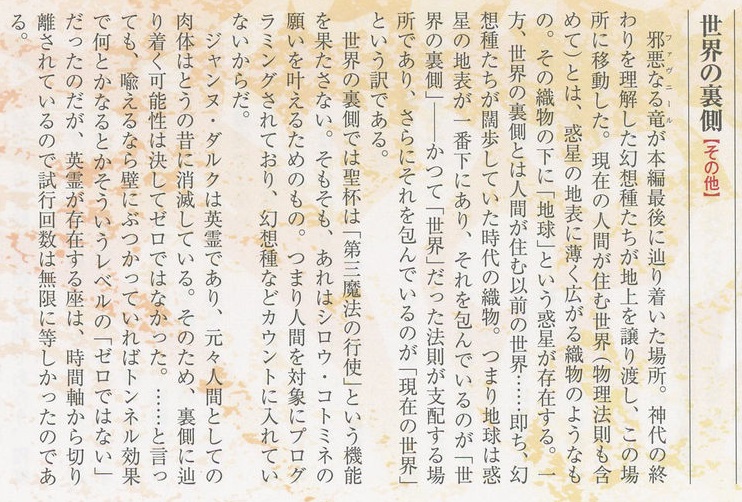 世界の裏側【その他】
ファヴニール
邪悪なる竜が本編最後に辿り着いた場所。神代の終
わりを理解した幻想種たちが地上を譲り渡し、この場
所に移動した。現在の人間が住む世界（物理法則も含
めて）とは、惑星の地表に薄く広がる織物のようなも
の。その織物の下に「地球」という惑星が存在する。一
方、世界の裏側とは人間が住む以前の世界……即ち、幻
想種たちが闊歩していた時代の織物。つまり地球は惑
星の地表が一番下にあり、それを包んでいるのが「世
界の裏側」――かつて「世界」だった法則が支配する場
所であり、さらにそれを包んでいるのが「現在の世界」
という訳である。
世界の裏側では聖杯は「第三魔法の行使」という機能
を果たさない。そもそも、あれはシロウ・コトミネの
願いを叶えるためのもの。つまり人間を対象にプログ
ラミングされており、幻想種などカウントに入れてい
ないからだ。
ジャンヌ・ダルクは英霊であり、元々人間としての
肉体はとうの昔に消滅している。そのため、裏側に辿
り着く可能性は決してゼロではなかった。……と言っ
ても、喩えるなら壁にぶつかっていればトンネル効果
で何とかなるとかそういうレベルの「ゼロではない」
だったのだが、英霊が存在する座は、時間軸から切り
離されているので試行回数は無限に等しかったのであ
る。